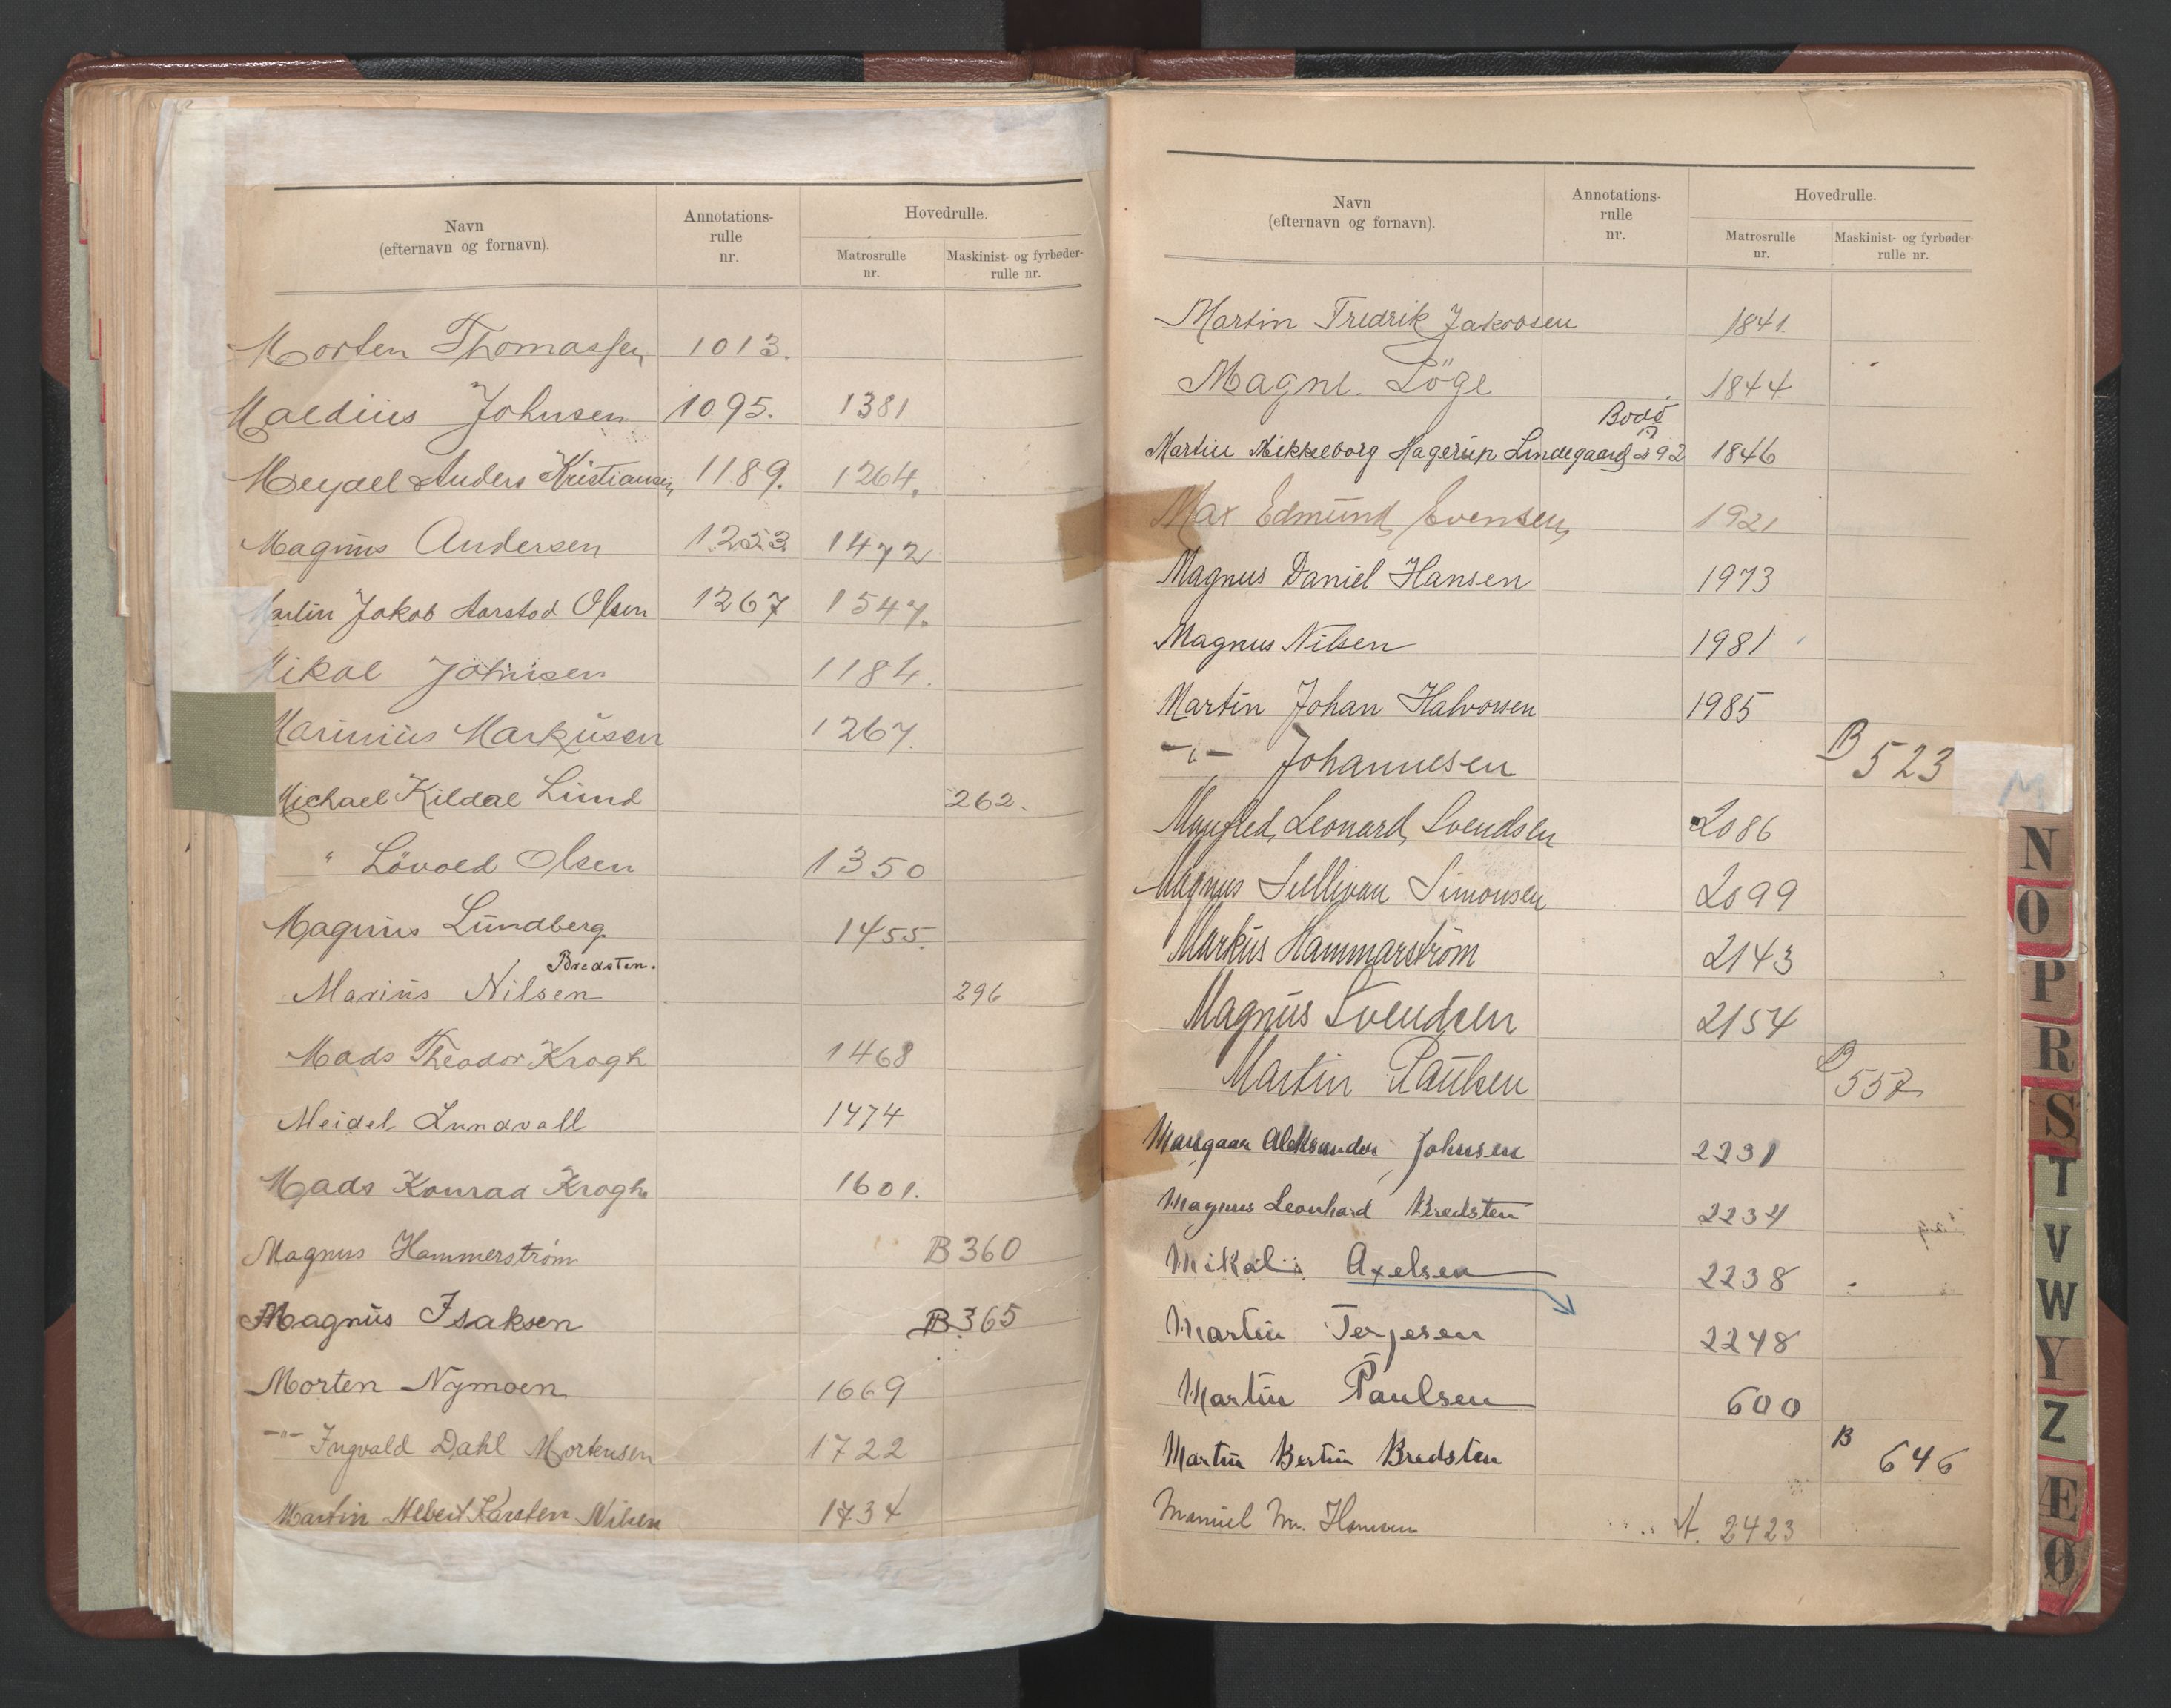 Navn
(efternavn og fornavn).
Annotations-
rulle
nr.
Hovedrulle.
Matrosrulle
nr.
Maskinist- og fyrbøder-
rulle nr.
Morten Thomassen 1013.
Maedius Johnsen 1095. 1381
Meyael Anders Kristiansen 1189. 1264.
Magnus Andersen 1253 1472
Martin Jakob Aarstod Olsen 1267 1547.
Mikal Johnsen 1184.
Marinius Markusen 1267.
Michael Kildal Lund 262.
" Lövold Olsen 1350
Magnus Lundberg 1455.
Bredsten.
Marius Nilsen 296
Mads Theodor Krogh 1468
Meidel Lundvall 1474
Mads Konrad Krogh 1601.
Magnus Hammerström B 360
Magnus Isaksen B 365
Morten Nymoen 1669
—"— Ingvald Dahl Mortensen 1722
Martin Albert Karsten Nilsen 1734
Navn
(efternavn og fornavn).
Annotations-
rulle
nr.
Hovedrulle.
Matrosrulle
nr.
Maskinist- og fyrbøder-
rulle nr.
Martin Fredrik Jakobsen 1841.
Magne. Löge 1844.
Bodö
Martin Mikkelborg Hagerup Lindegaard 292 1846
Max Edmund Evensen 1921
Magnus Daniel Hansen 1973
Magnus Nilsen 1981
Martin Johan Halvorsen 1985
—"— Johannesen B 523
Manfred Leonard Svendsen 2086
Magnus Sullivan Simonsen 2099
Markus Hammarström 2143
Magnus Svendsen 2154
Martin Paulsen B 557
Aleksander Johnsen 2231
Magnus Leonhard Bredsten 2234
Mikal Axelsen 2238
Martin Terjesen 2248
Martin Paulsen 600
Martin Bertin Bredsten B 646
Manuel M. Hansen A. 2423
M
N
O
P
R
S
T
V
W
Y
Z
Æ
Ø